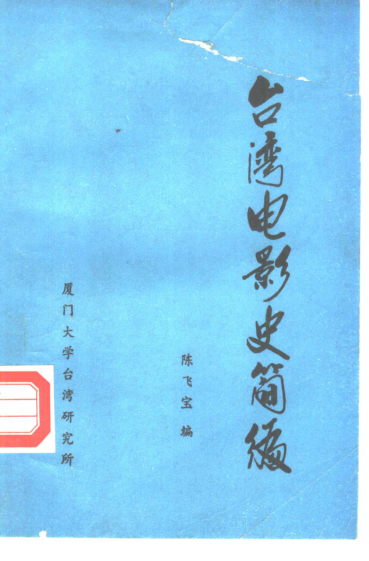 台湾电影史简编
陈飞宝编
厦门大学台湾研究所